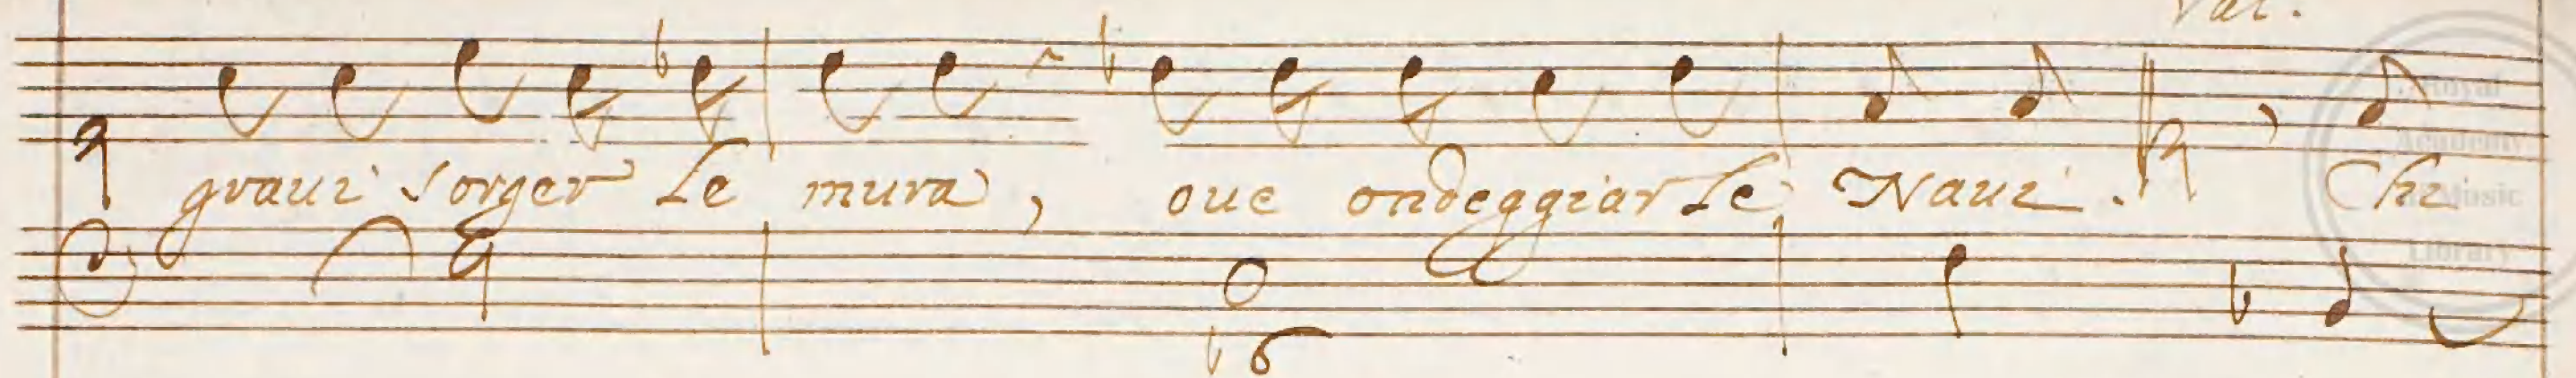 Val.
graui sorger le mura, oue ondeggiar le Naui. Chi
Royal
Academy
of Music
Library
6